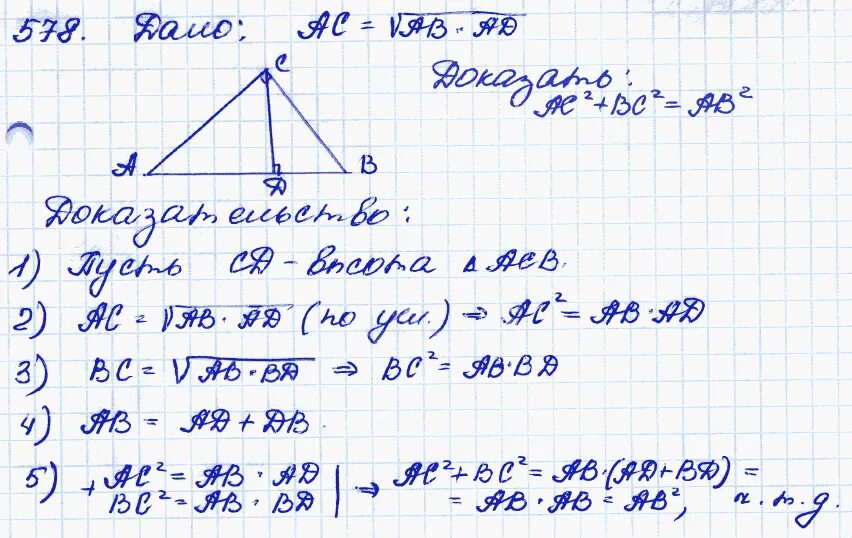 578. Дано: AC = √AB · AD
Доказать:
AC² + BC² = AB²
C
A
B
D
Доказательство:
1) Пусть CD - высота △ ACB.
2) AC = √AB · AD (по усл.) ⇒ AC² = AB · AD
3) BC = √AB · BD ⇒ BC² = AB · BD
4) AB = AD + DB
5) + AC² = AB · AD | ⇒ AC² + BC² = AB · (AD + BD) =
BC² = AB · BD | = AB · AB = AB², ч.т.д.